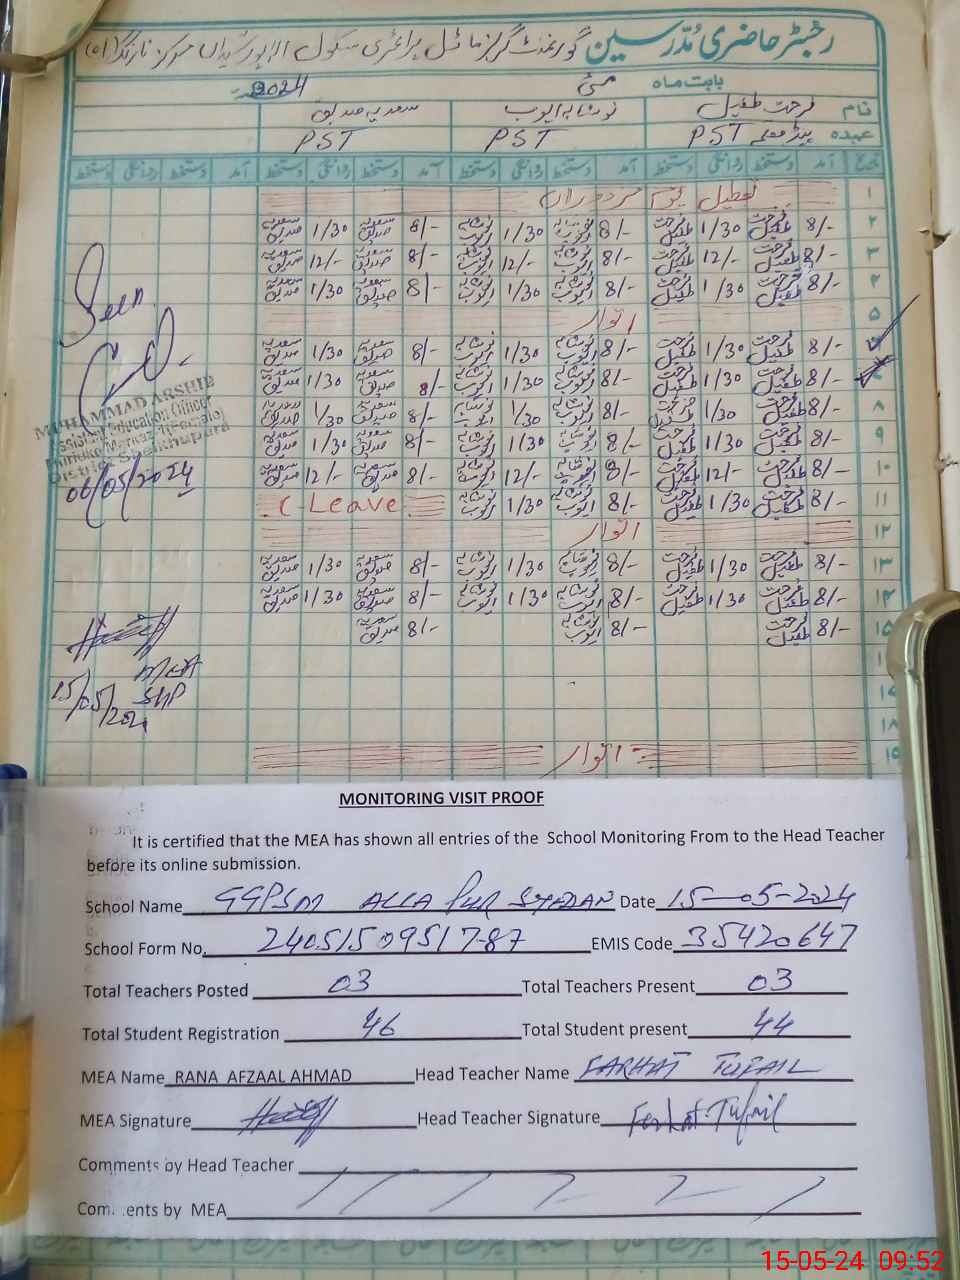 رجسٹر حاضری مدرسین گورنمنٹ گرلز ماڈل پرائمری سکول الاپور سیداں مرکز نارنگ (01)
بابت ماہ مئی 2024
نام فرحت طفیل نوشابہ ایوب سعدیہ صدیق
عہدہ ہیڈ معلمہ PST PST PST
تاریخ آمد دستخط روانگی دستخط آمد دستخط روانگی دستخط آمد دستخط روانگی دستخط آمد دستخط روانگی دستخط
۱ تعطیل یوم مزدوراں
۲ 8/- فرحت طفیل 1/30 فرحت طفیل 8/- نوشابہ ایوب 1/30 نوشابہ ایوب 8/- سعدیہ صدیق 1/30 سعدیہ صدیق
۳ 8/- فرحت طفیل 12/- فرحت طفیل 8/- نوشابہ ایوب 12/- نوشابہ ایوب 8/- سعدیہ صدیق 12/- سعدیہ صدیق
۴ 8/- فرحت طفیل 1/30 فرحت طفیل 8/- نوشابہ ایوب 1/30 نوشابہ ایوب 8/- سعدیہ صدیق 1/30 سعدیہ صدیق
۵ اتوار
8/- فرحت طفیل 1/30 فرحت طفیل 8/- نوشابہ ایوب 1/30 نوشابہ ایوب 8/- سعدیہ صدیق 1/30 سعدیہ صدیق
8/- فرحت طفیل 1/30 فرحت طفیل 8/- نوشابہ ایوب 1/30 نوشابہ ایوب 8/- سعدیہ صدیق 1/30 سعدیہ صدیق
۸ 8/- فرحت طفیل 1/30 فرحت طفیل 8/- نوشابہ ایوب 1/30 نوشابہ ایوب 8/- سعدیہ صدیق 1/30 سعدیہ صدیق
۹ 8/- فرحت طفیل 1/30 فرحت طفیل 8/- نوشابہ ایوب 1/30 نوشابہ ایوب 8/- سعدیہ صدیق 1/30 سعدیہ صدیق
۱۰ 8/- فرحت طفیل 12/- فرحت طفیل 8/- نوشابہ ایوب 12/- نوشابہ ایوب 8/- سعدیہ صدیق 12/- سعدیہ صدیق
۱۱ 8/- فرحت طفیل 1/30 فرحت طفیل 8/- نوشابہ ایوب 1/30 نوشابہ ایوب C-Leave
۱۲ اتوار
۱۳ 8/- فرحت طفیل 1/30 فرحت طفیل 8/- نوشابہ ایوب 1/30 نوشابہ ایوب 8/- سعدیہ صدیق 1/30 سعدیہ صدیق
۱۴ 8/- فرحت طفیل 1/30 فرحت طفیل 8/- نوشابہ ایوب 1/30 نوشابہ ایوب 8/- سعدیہ صدیق 1/30 سعدیہ صدیق
۱۵ 8/- فرحت طفیل 8/- نوشابہ ایوب 8/- سعدیہ صدیق
۱۸
اتوار
Seen
MUHAMMAD ARSHID
Assistant Education Officer
District Sheikhupura
06/05/2024
MEA
SHP
15/05/202
MONITORING VISIT PROOF
It is certified that the MEA has shown all entries of the School Monitoring From to the Head Teacher
before its online submission.
School Name GGPSM ALLA PUR SYEDAN Date 15-05-2024
School Form No. 24051509517-87 EMIS Code 35420647
Total Teachers Posted 03 Total Teachers Present 03
Total Student Registration 46 Total Student present 44
MEA Name RANA AFZAAL AHMAD Head Teacher Name FARHAT TUFAIL
MEA Signature Head Teacher Signature Farhat Tufail
Comments by Head Teacher
Com. .ents by MEA
15-05-24 09:52